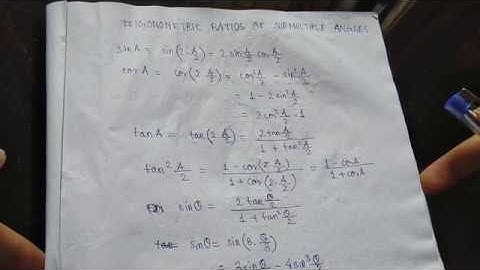 TRIGONOMETRIC RATIOS OF SUBMULTIPLE ANGLES
sinA = sin(2·A/2) = 2 sin A/2 cos A/2
cosA = cos(2·A/2) = cos²A/2 - sin²A/2
= 1 - 2 sin²A/2
= 2cos²A/2 - 1
tanA = tan(2·A/2) = 2tan A/2 / 1 + tan²A/2
tan² A/2 = 1 - cos(2·A/2) / 1 + cos(2·A/2) = 1 - cosA / 1 + cosA
sinθ = 2 tan θ/2 / 1 + tan² θ/2
sinθ = sin(3·θ/3)
= 3 sin θ/3 - 4 sin³ θ/3